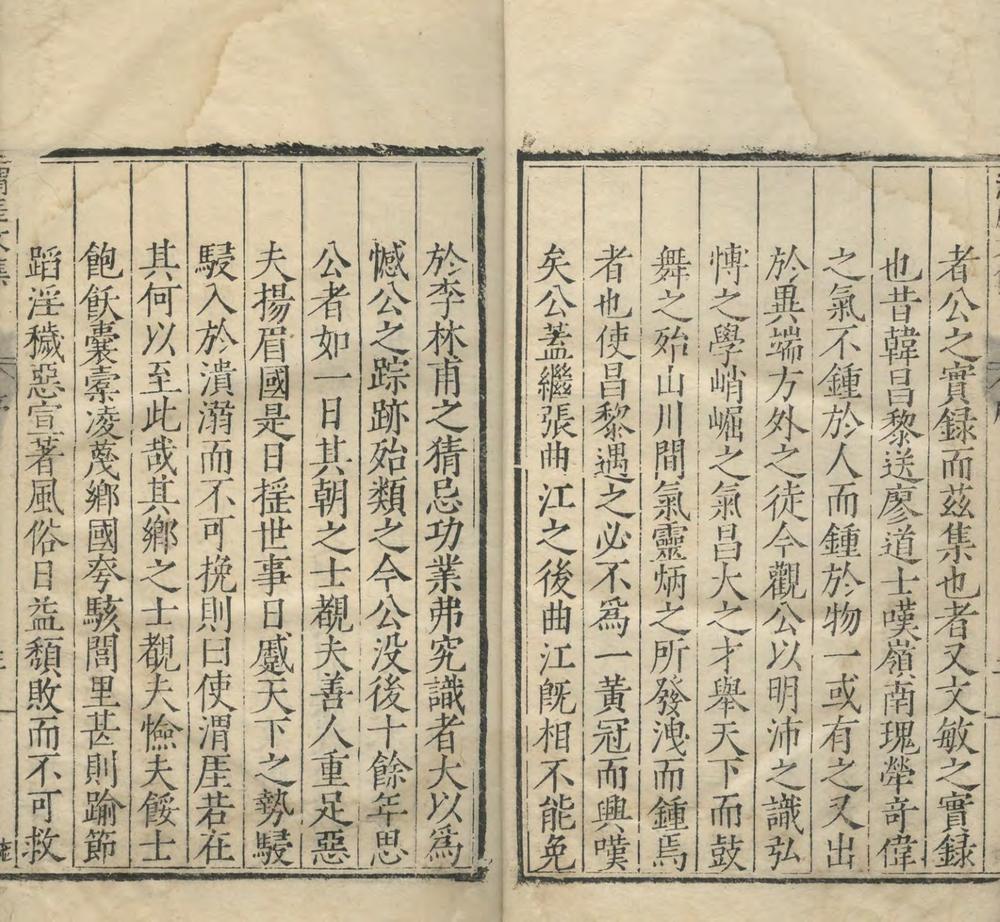 者公之實録而茲集也者又文敏之實録
也昔韓昌黎送廖道士嘆嶺南瑰犖竒偉
之氣不鍾於人而鍾於物一或有之又出
於異端方外之徒今觀公以明沛之識弘
慱之學峭崛之氣昌大之才舉天下而鼓
舞之殆山川間氣靈炳之所發洩而鍾焉
者也使昌黎遇之必不爲一黃冠而興嘆
矣公蓋繼張曲江之後曲江旣相不能免
於李林甫之猜忌功業弗究識者大以爲
憾公之踪跡殆類之今公没後十餘年思
公者如一日其朝之士覩夫善人重足惡
夫揚眉國是日搖世事日蹙天下之勢駸
駸入於潰溺而不可挽則曰使渭厓若在
其何以至此哉其鄉之士覩夫憸夫餒士
飽飫囊橐凌蔑鄉國夸駭閭里甚則踰節
蹈淫穢惡宣著風俗日益頽敗而不可救
渭厓文集